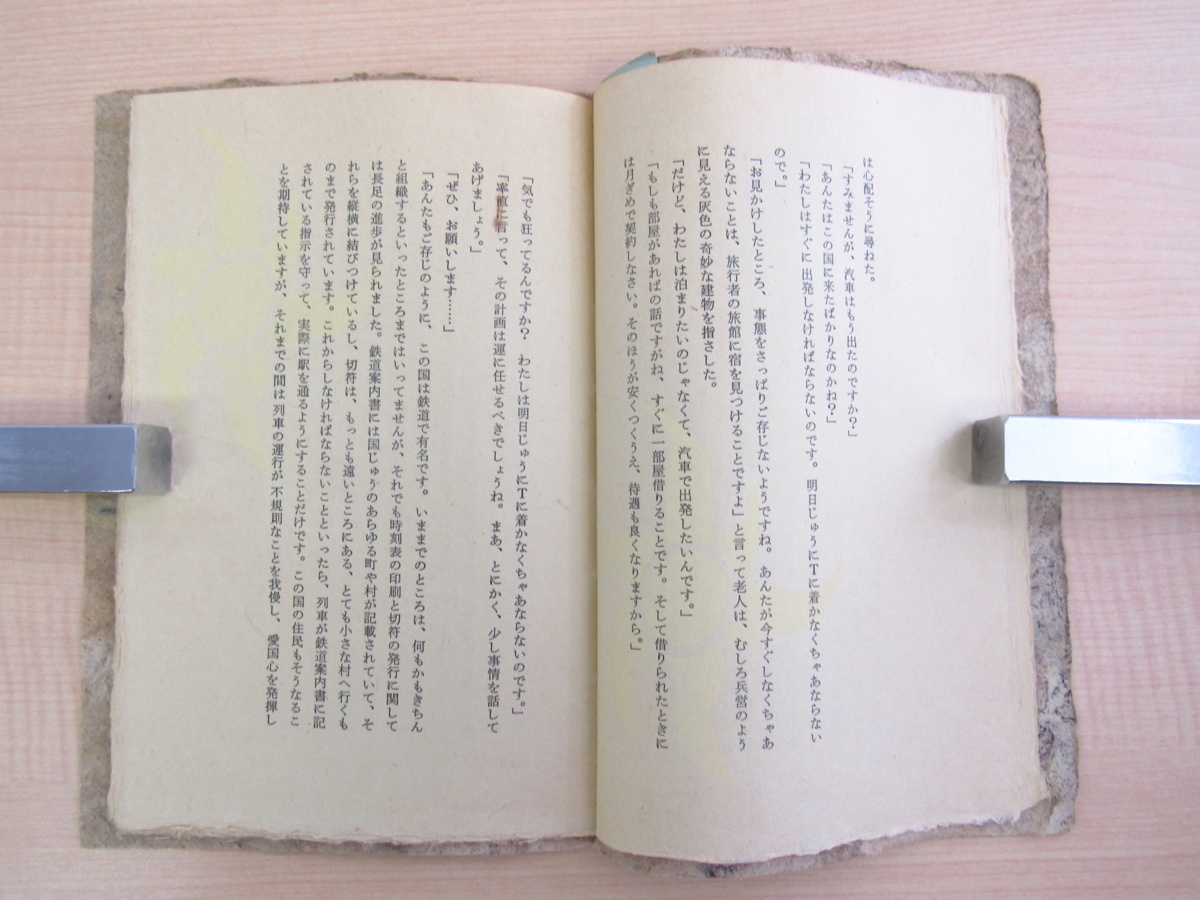 は心配そうに尋ねた。
「すみませんが、汽車はもう出たのですか？」
「あんたはこの国に来たばかりなのかね？」
「わたしはすぐに出発しなければならないのです。明日じゅうにTに着かなくちゃあならない
ので。」
「お見かけしたところ、事態をさっぱりご存じないようですね。あんたが今すぐしなくちゃあ
ならないことは、旅行者の旅館に宿を見つけることですよ」と言って老人は、むしろ兵営のよう
に見える灰色の奇妙な建物を指さした。
「だけど、わたしは泊まりたいのじゃなくて、汽車で出発したいんです。」
「もしも部屋があればの話ですがね、すぐに一部屋借りることです。そして借りられたときに
は月ぎめで契約しなさい。そのほうが安くつくうえ、待遇も良くなりますから。」
「気でも狂ってるんですか？　わたしは明日じゅうにTに着かなくちゃあならないのです。」
「率直に言って、その計画は運に任せるべきでしょうね。まあ、とにかく、少し事情を話して
あげましょう。」
「ぜひ、お願いします……」
「あんたもご存じのように、この国は鉄道で有名です。いままでのところは、何もかもきちん
と組織するといったところまではいってませんが、それでも時刻表の印刷と切符の発行に関して
は長足の進歩が見られました。鉄道案内書には国じゅうのあらゆる町や村が記載されていて、そ
れらを縦横に結びつけているし、切符は、もっとも遠いところにある、とても小さな村へ行くも
のまで発行されています。これからしなければならないことといったら、列車が鉄道案内書に記
されている指示を守って、実際に駅を通るようにすることだけです。この国の住民もそうなるこ
とを期待していますが、それまでの間は列車の運行が不規則なことを我慢し、愛国心を発揮し